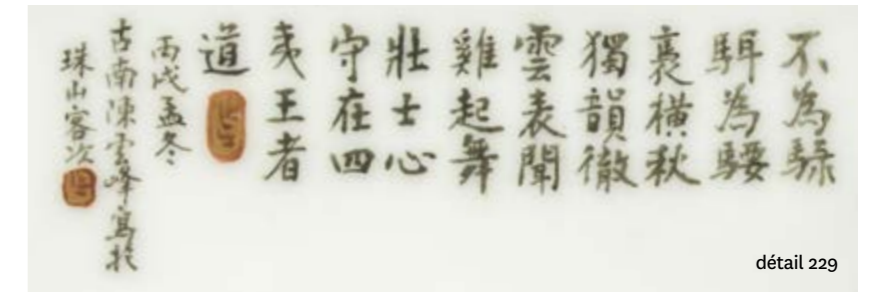 不為騄
駬為騕
褭橫秋
獨韻徹
雲表聞
雞起舞
壯士心
守在四
夷王者
道
丙戌孟冬
古南陳雲峰寫於
珠山客次
détail 229